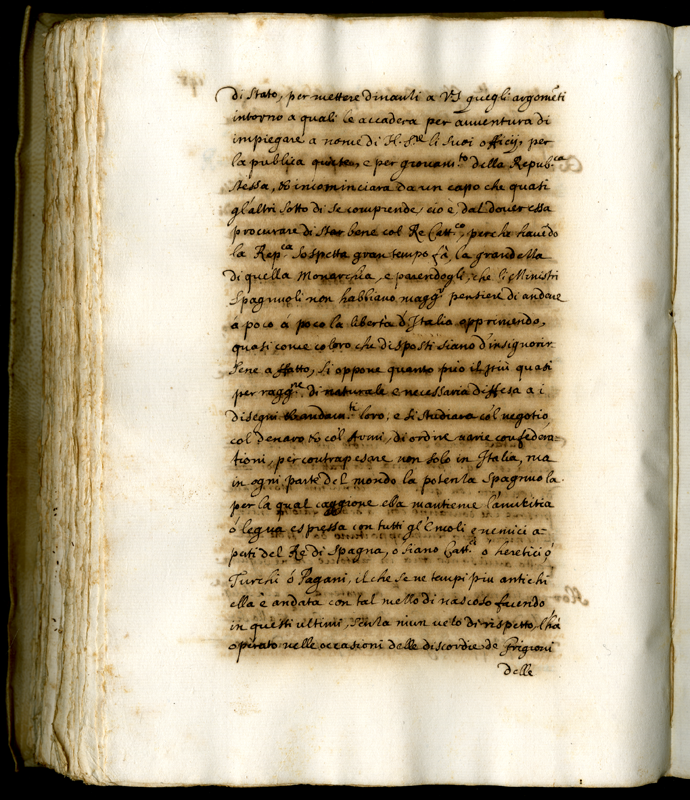 di Stato, per mettere dinanzi a VS quegli argomẽti
intorno a quali le accaderà per auuentura di
impiegare a nome di H. S.re li suoi officij per
la publica quiete, e per giouam.to della Repub.ca
stessa, et incominciara da un capo che quasi
gl'altri sotto di se comprende, cio è, dal douer essa
procurare di star bene col Re Catt.co, perche hauẽdo
la Rep.ca sospetta gran tempo fà, la grandezza
di quella Monarchia, e parendogli, che li Ministri
Spagnuoli non habbiano magg.r pensiere di andare
à poco à poco la libertà d'Italia opprimendo,
quasi come coloro che disposti siano d'insignorir
sene affatto, si oppone quanto può il più quasi
per ragg.ne di naturale e necessaria diffesa a i
disegni loro, e si studiara col negotio
col denaro et col Armi, di ordire uarie confeden
tioni, per contrapesare non solo in Italia, ma
in ogni parte del mondo la potenza Spagnuola
per la qual caggione essa mantiene l'amicitia
ò legua espressa con tutti gl'Emoli e nemici a
perti del Re di Spagna, o siano Catt.ci o heretici ò
Turchi ò Pagani, il che se ne tempi piu antichi
ella è andata con tal mezzo di nascoso facendo
in questi ultimi, senza niun uelo di rispetto, l'hà
operato nelle occasioni delle discordie de Grigioni
delle